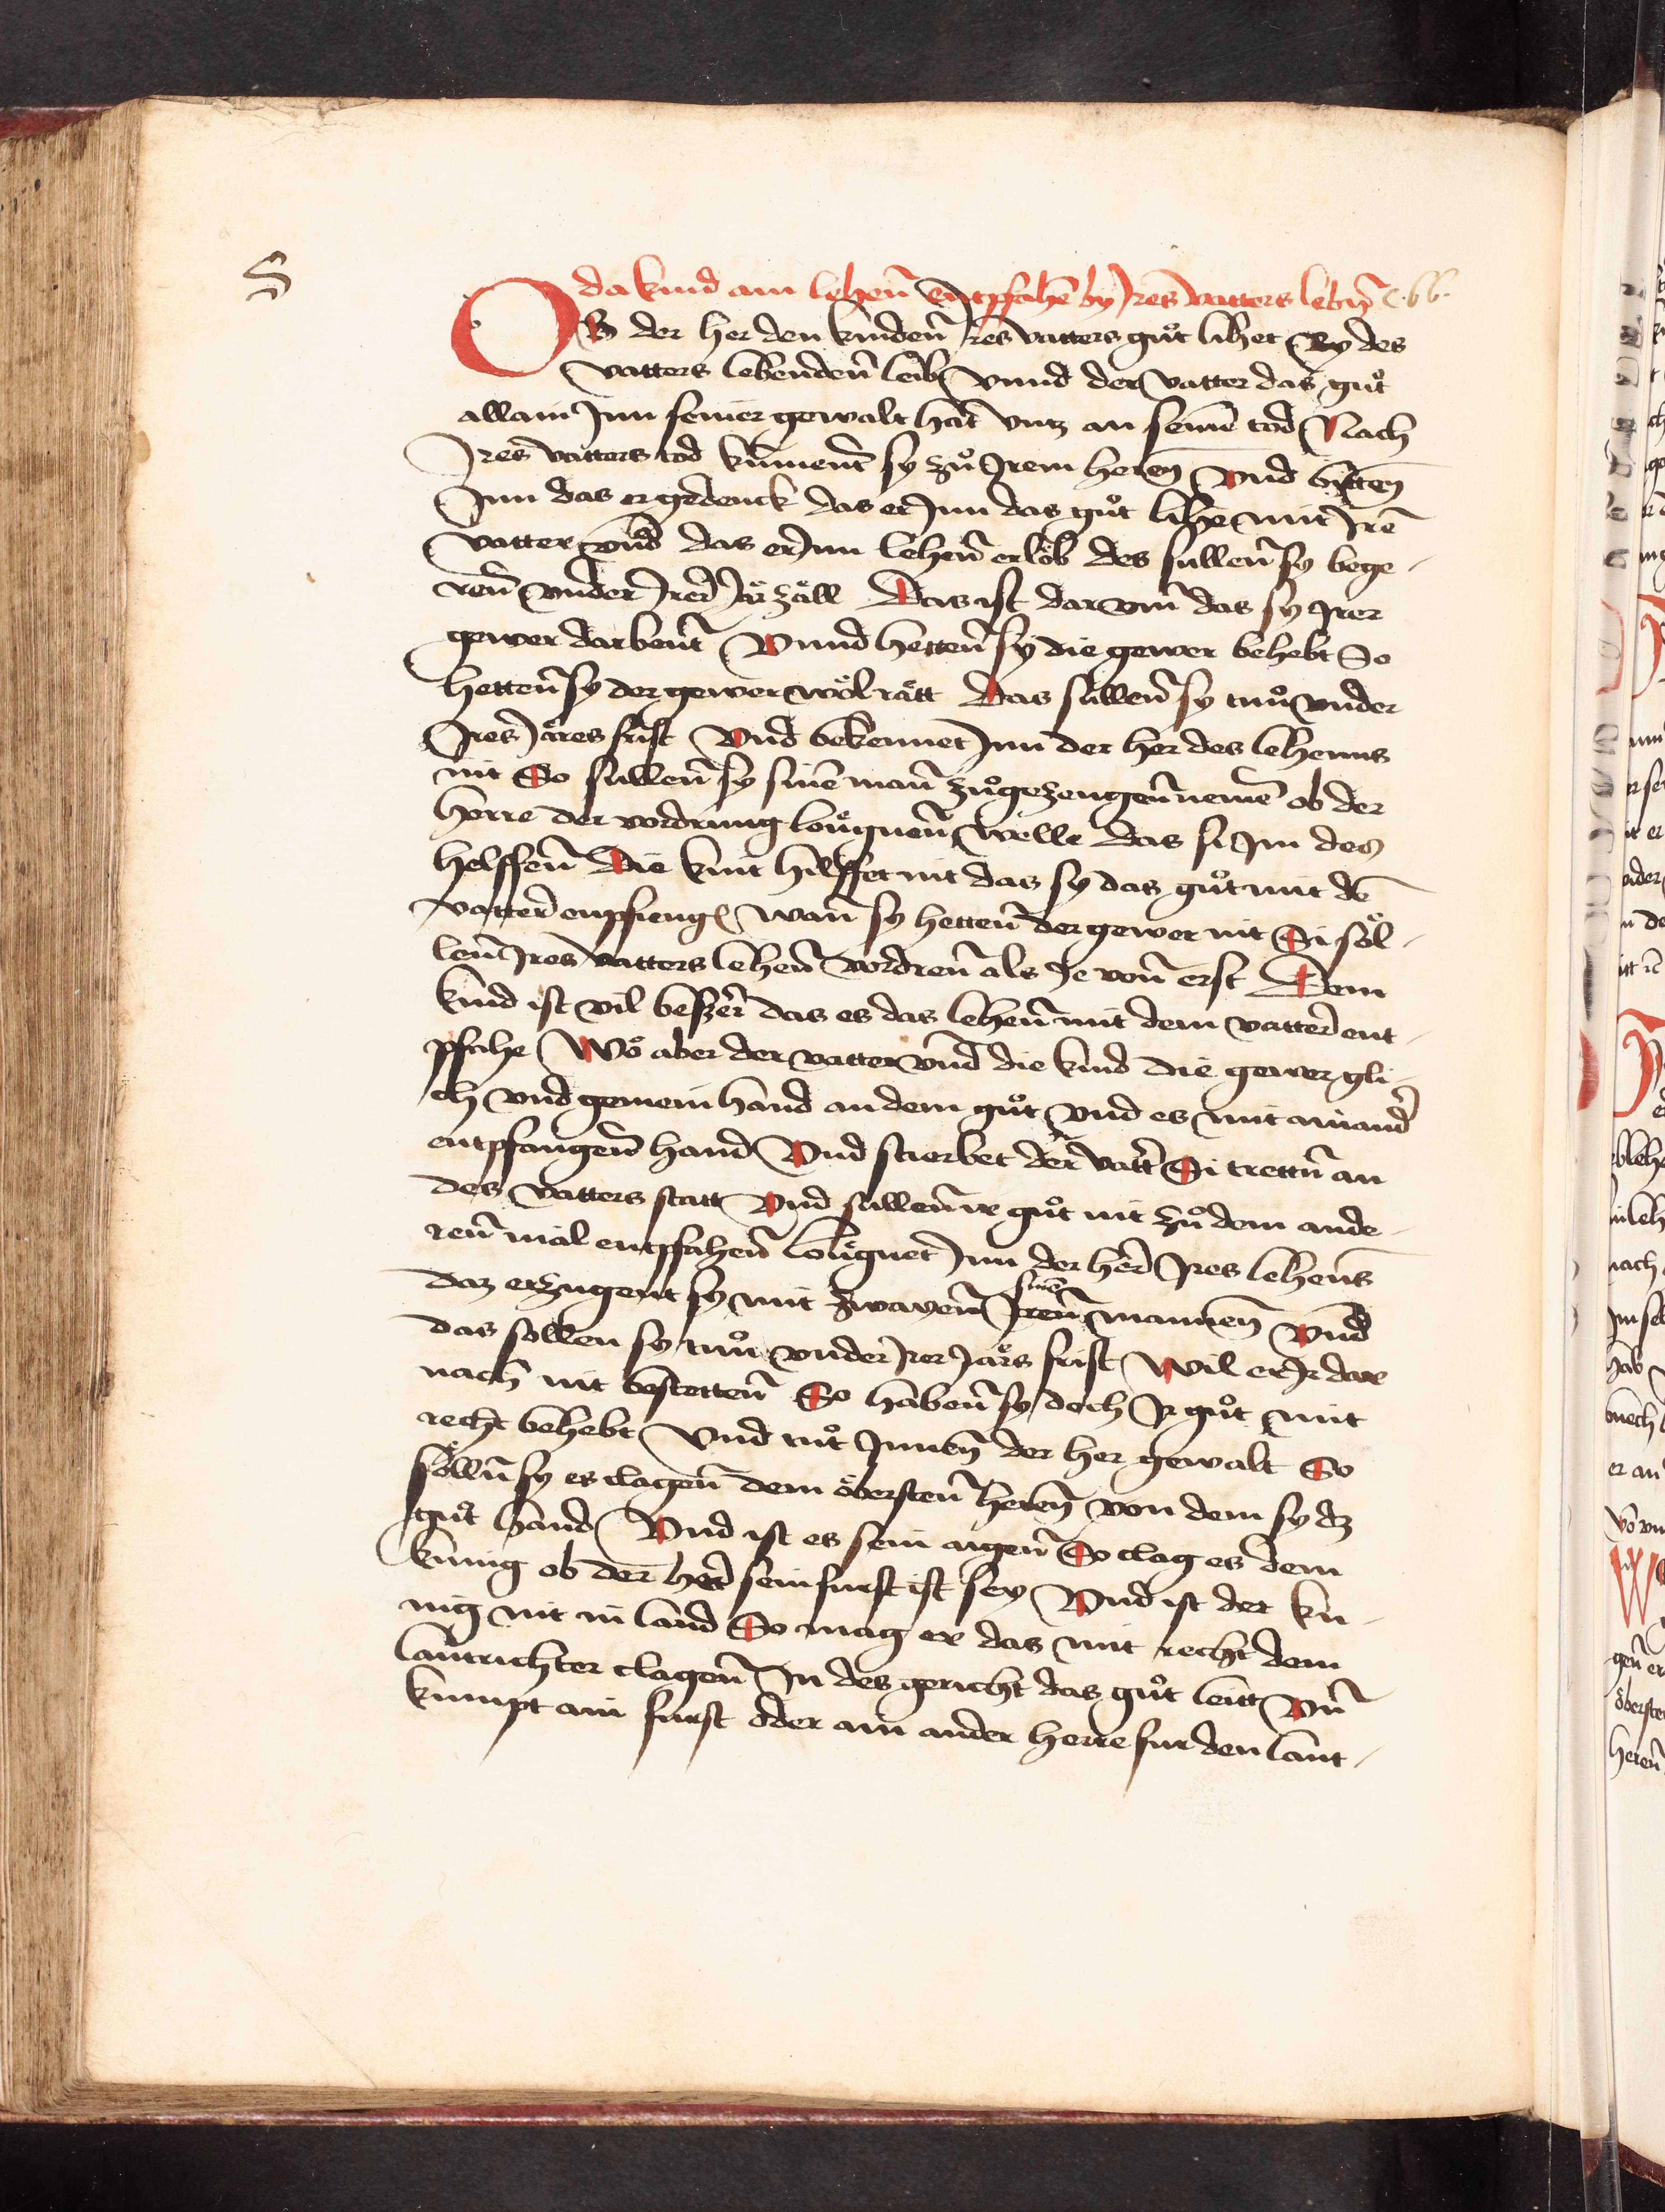 S
da kind ain lehen̄ entpfahē by Ires vatters lebn̄ c. 66.
OB der her den kinden̄ Ires vatters gůt lihet By des
vatters lebenden̄ leib vnnd der vatter das gůt
allain Jnn seiner gewalt hat̄ vntz an seinē tod Nach
Jres vatters tod kument̄ sy zů Jrem heren̄ Vnd bitten
Jnn das er gedenck das er Jnn das gůt lihe mit Jrē
vatter vnd das er Jnn lehen̄ erlob des sullen̄ sy bege-
ren̄ vnder Irer Jarzall Das ist darvm̄ das sy Irer
gewer darbent̄ Vnnd hetten̄ sy die gewer behebt So
hetten̄ sy der gewer wol ratt Das sullen̄ sy tuů vnder
Jres Jares frist Vnd bekennet Jnn der her des lehenns
nit So sullen̄ sy sinē man̄ zů gezeugen̄ nemē ob der
herre der vordrung lougnen̄ welle das si Jm des
helffen̄ Die kint hilffet nit das sy das gůt mit dē
vatter enpfieng wan̄ sy hetten̄ der gewer nit Si söl-
len̄ Ires vatters lehen̄ vordren̄ als Je von̄ erst Dem
kind ist vil besser̄ das es das lehen̄ mit dem vatter ent-
pfahe Wo aber der vatter vnd die kind die gewer gli-
ch vnd gemein hand an dem gůt vnd es mit ainand̄
entpfangen̄ hand Vnd stierbet der vatt̄ Si trettn̄ an
des vatters statt Vnd sullen̄ ir gůt nit zů dem ande-
ren̄ mal entpfahen̄ lougnet Jnn der her Jres lehens
daz erzugent sy mit zwayen̄ Iren̄ sinē mannen̄ Vnd
das sollen sy tuů vnder Irer Jars frist Wil er Ir dar
nach nit bestetten̄ So haben̄ sy doch Ir gůt mit
recht behebt Vnd tůt Jnnen̄ der her gewalt So
sölln̄ sy es clagen̄ dem öbersten̄ heren̄ von dem sy dz
gůt hand Vnd ist es sein aigen̄ So clag es dem
kunig ob der her sein furst ist sey Vnd ist der ku-
nig nit in land So mag er das mit recht dem
lantrichter clagen̄ In des gericht das gůt leitt Vn̄
kumpt ain furst oder ain ander herre fur den lant-